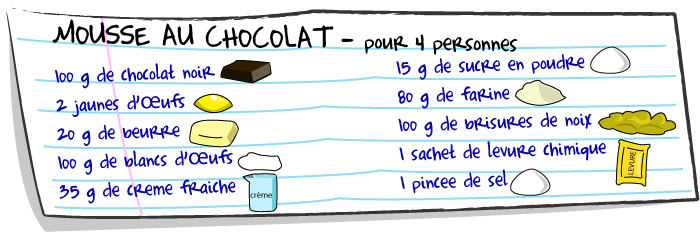 MOUSSE AU CHOCOLAT - pour 4 personnes
100 g de chocolat noir
2 jaunes d'œufs
20 g de beurre
100 g de blancs d'œufs
35 g de creme fraiche
crème
15 g de sucre en poudre
80 g de farine
100 g de brisures de noix
1 sachet de levure chimique
LEVURE
1 pincee de sel